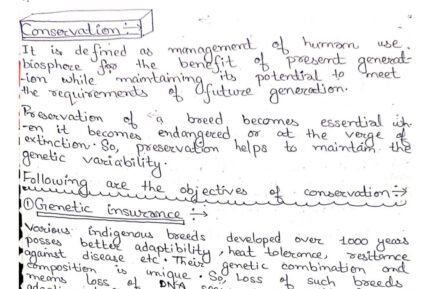 Conservation :-
It is defined as management of human use
biosphere for the benefit of present generat-
-ion while maintaining its potential to meet
the requirements of future generation.
Preservation of a breed becomes essential wh-
-en it becomes endangered or at the verge of
extinction. So, preservation helps to maintain the
genetic variability.
Following are the objectives of conservation :→
① Genetic insurance :→
Various indigenous breeds developed over 1000 years
posses better adaptibility, heat tolerance, resitance
against disease etc. Their genetic combination and
composition is unique. So, Loss of such breeds
means loss of DNA